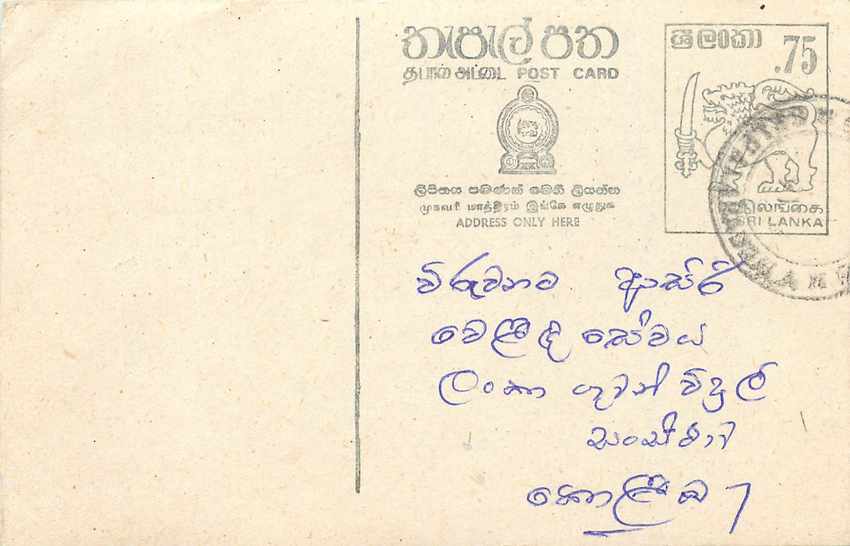 තැපැල් පත
தபால் அட்டை POST CARD
ලිපිනය පමණක් මෙහි ලියන්න
முகவரி மாத்திரம் இங்கே எழுதுக
ADDRESS ONLY HERE
ශ්‍රී ලංකා
.75
இலங்கை
SRI LANKA
විරුවනට ආසිරි
වෙළඳ සේවය
ලංකා ගුවන් විදුලි
සංස්ථාව
කොළඹ 7